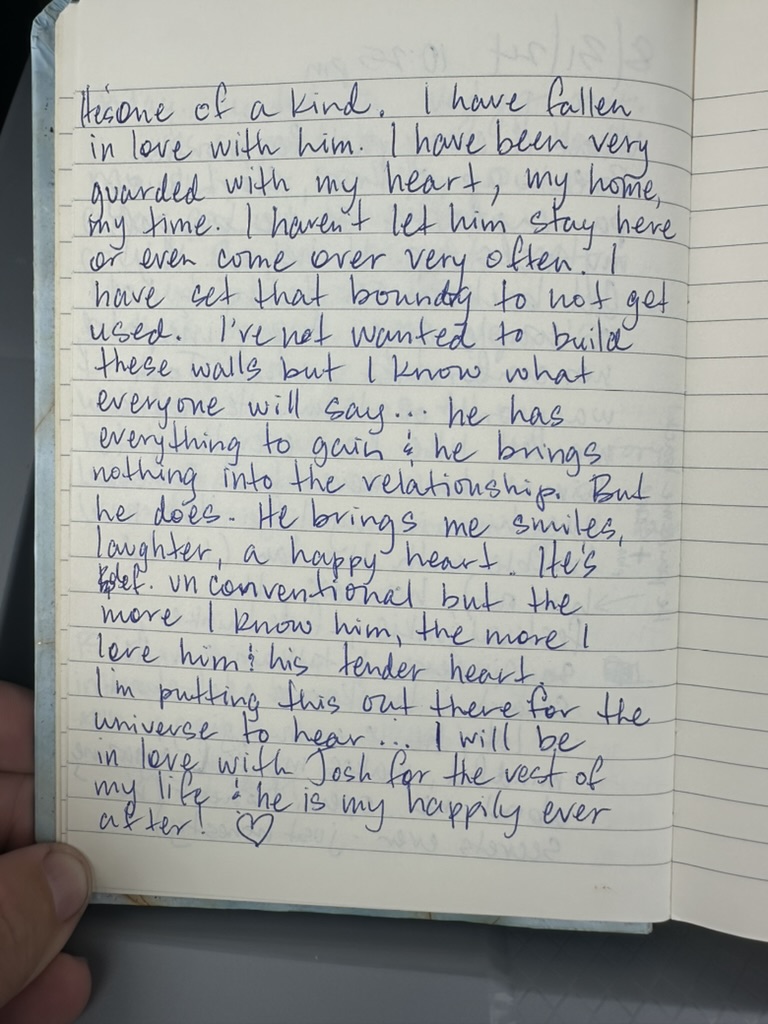 He's one of a kind. I have fallen
in love with him. I have been very
guarded with my heart, my home,
my time. I haven't let him stay here
or even come over very often. I
have set that boundry to not get
used. I've not wanted to build
these walls but I know what
everyone will say... he has
everything to gain & he brings
nothing into the relationship. But
he does. He brings me smiles,
laughter, a happy heart. He's
def. unconventional but the
more I know him, the more I
love him & his tender heart.
I'm putting this out there for the
universe to hear... I will be
in love with Josh for the rest of
my life & he is my happily ever
after! ♡